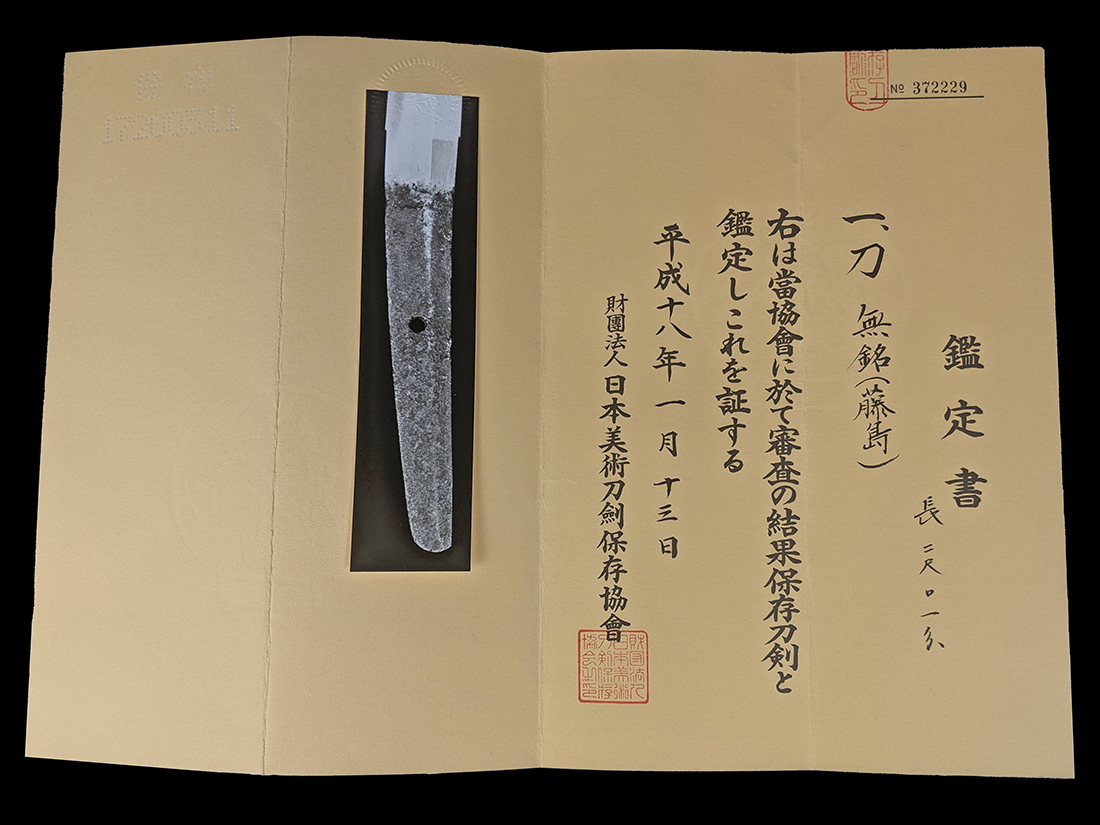 No 372229
鑑定書
長 二尺〇一分
一、刀 無銘(藤島)
右は當協會に於て審査の結果保存刀剣と
鑑定しこれを証する
平成十八年一月十三日
財團法人日本美術刀劍保存協會